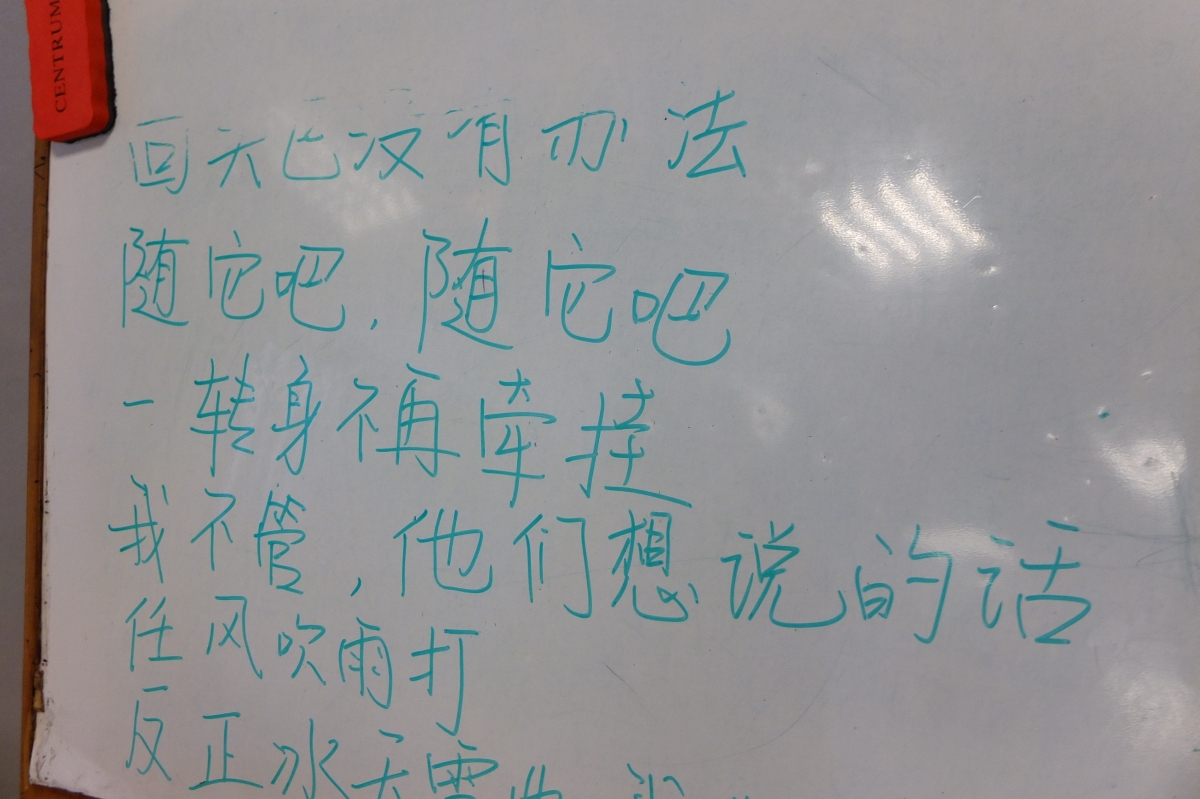 CENTRUM
回头已没有办法
随它吧,随它吧
一转身不再牵挂
我不管,他们想说的话
任风吹雨打
反正冰天雪